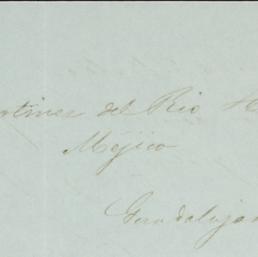 rtinez del Rio H
Méjico
Guadalajar